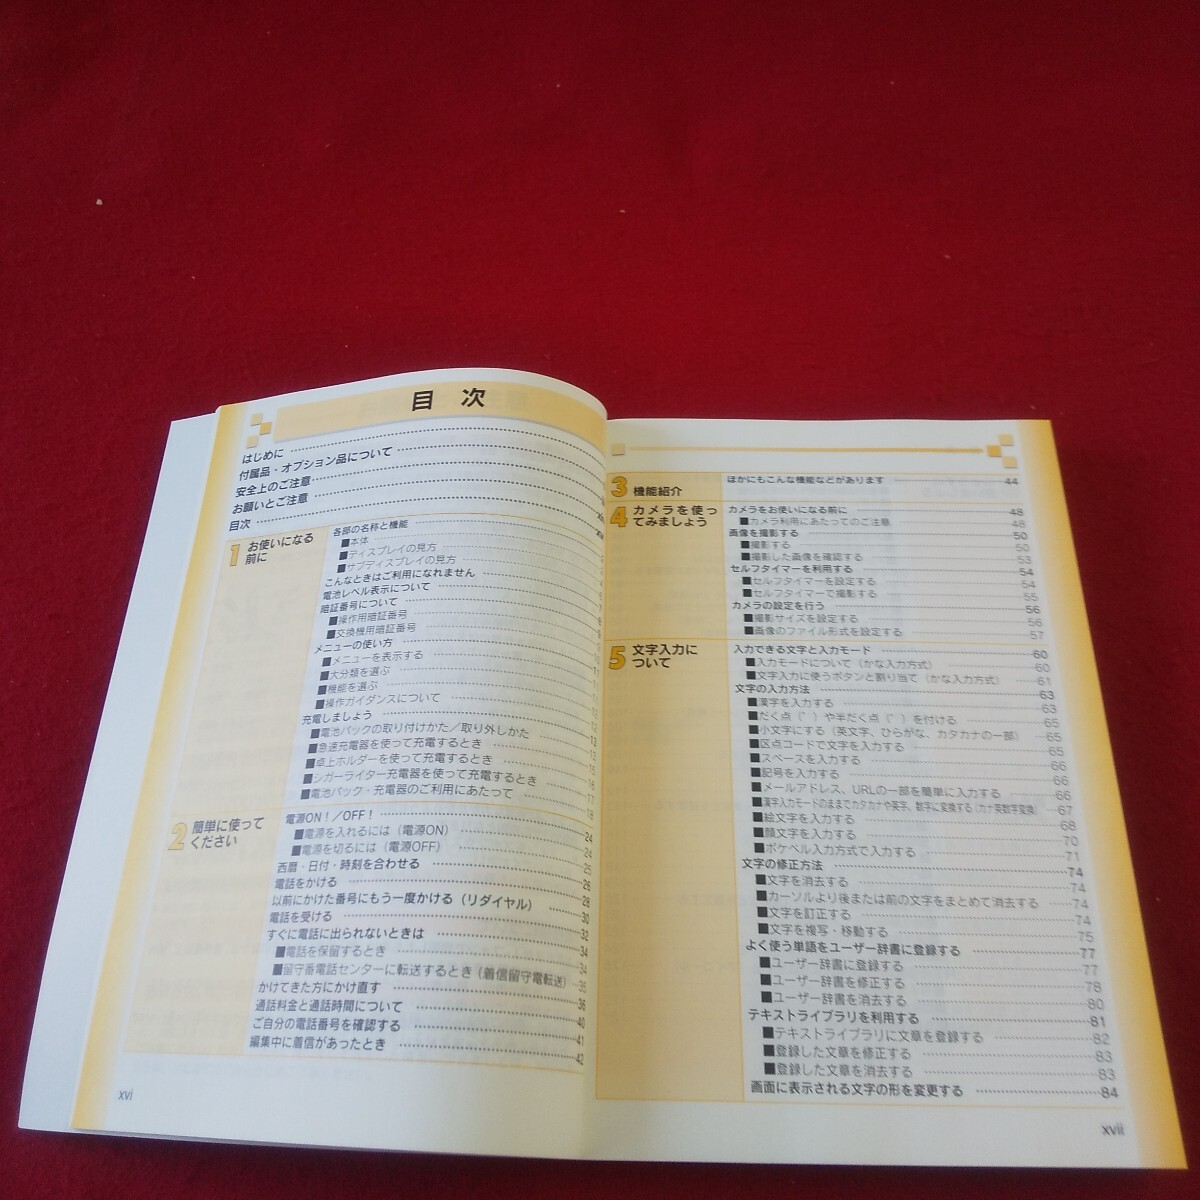 目 次
はじめに
付属品・オプション品について
安全上のご注意
お願いとご注意
目次
1 お使いになる前に
各部の名称と機能
■本体
■ディスプレイの見方
■サブディスプレイの見方
こんなときはご利用になれません
電池レベル表示について
暗証番号について
■操作用暗証番号
■交換機用暗証番号
メニューの使い方
■メニューを表示する
■大分類を選ぶ
■機能を選ぶ
■操作ガイダンスについて
充電しましょう
■電池パックの取り付けかた／取り外しかた
■急速充電器を使って充電するとき
■卓上ホルダーを使って充電するとき
■シガーライター充電器を使って充電するとき
■電池パック・充電器のご利用にあたって
2 簡単に使ってください
電源ON！／OFF！ 24
■電源を入れるには（電源ON） 24
■電源を切るには（電源OFF） 25
西暦・日付・時刻を合わせる 26
電話をかける 28
以前にかけた番号にもう一度かける（リダイヤル） 30
電話を受ける 32
すぐに電話に出られないときは 34
■電話を保留するとき 34
■留守番電話センターに転送するとき（着信留守電転送） 35
かけてきた方にかけ直す 36
通話料金と通話時間について 40
ご自分の電話番号を確認する 41
編集中に着信があったとき 42
xvi
3 機能紹介
ほかにもこんな機能などがあります 44
4 カメラを使ってみましょう
カメラをお使いになる前に 48
■カメラ利用にあたってのご注意 48
画像を撮影する 50
■撮影する 50
■撮影した画像を確認する 53
セルフタイマーを利用する 54
■セルフタイマーを設定する 54
■セルフタイマーで撮影する 55
カメラの設定を行う 56
■撮影サイズを設定する 56
■画像のファイル形式を設定する 57
5 文字入力について
入力できる文字と入力モード 60
■入力モードについて（かな入力方式） 60
■文字入力に使うボタンと割り当て（かな入力方式） 61
文字の入力方法 63
■漢字を入力する 63
■だく点（゛）や半だく点（゜）を付ける 65
■小文字にする（英文字、ひらがな、カタカナの一部） 65
■区点コードで文字を入力する 65
■スペースを入力する 66
■記号を入力する 66
■メールアドレス、URLの一部を簡単に入力する 66
■漢字入力モードのままでカタカナや英字、数字に変換する（カナ英数字変換） 67
■絵文字を入力する 68
■顔文字を入力する 70
■ポケベル入力方式で入力する 71
文字の修正方法 74
■文字を消去する 74
■カーソルより後または前の文字をまとめて消去する 74
■文字を訂正する 74
■文字を複写・移動する 75
よく使う単語をユーザー辞書に登録する 77
■ユーザー辞書に登録する 77
■ユーザー辞書を修正する 78
■ユーザー辞書を消去する 80
テキストライブラリを利用する 81
■テキストライブラリに文章を登録する 82
■登録した文章を修正する 83
■登録した文章を消去する 83
画面に表示される文字の形を変更する 84
xvii